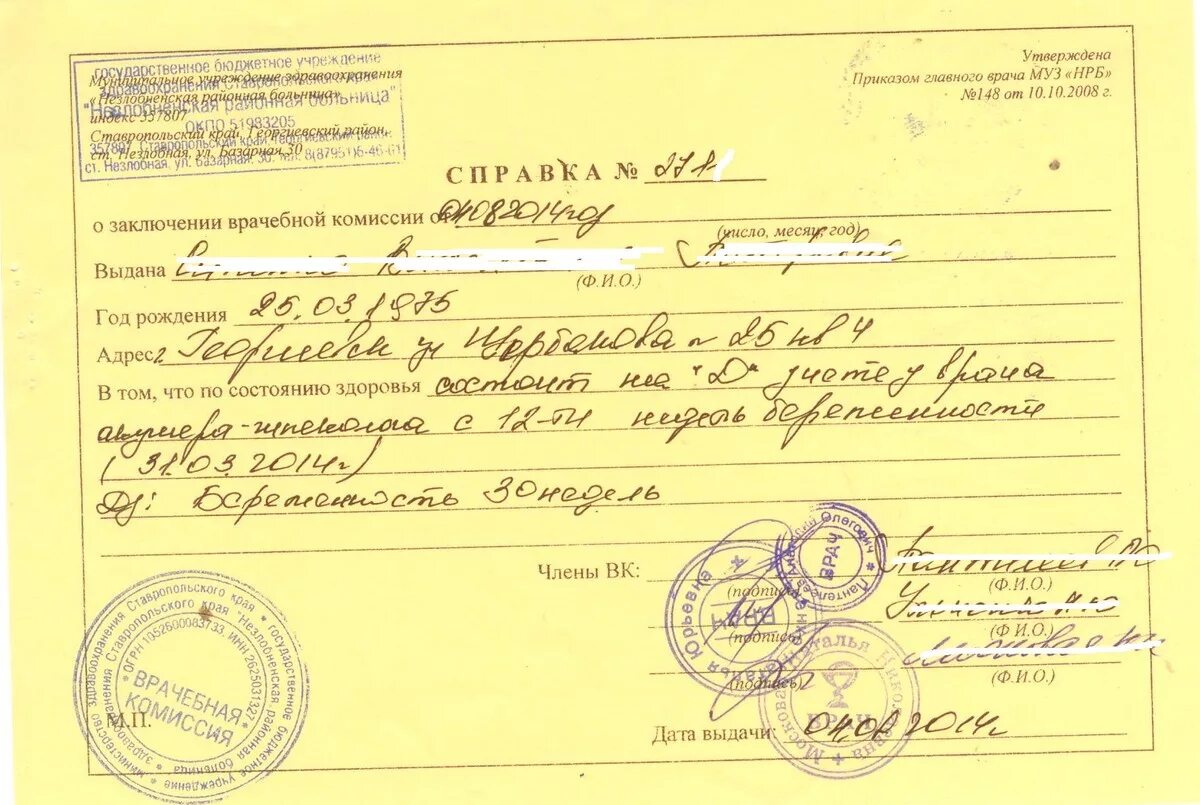 государственное бюджетное учреждение
здравоохранения Ставропольского края
"Незлобненская районная больница"
ОКПО 51983205
357807, Ставропольский край, Георгиевский район,
ст. Незлобная, ул. Базарная, 30, тел. 8(87951)5-46-61
Муниципальное учреждение здравоохранения
«Незлобненская районная больница»
индекс 357807
Ставропольский край, Георгиевский район,
ст. Незлобная, ул. Базарная 30
Утверждена
Приказом главного врача МУЗ «НРБ»
№148 от 10.10.2008 г.
СПРАВКА №
о заключении врачебной комиссии от 04082014год
(число, месяц, год)
Выдана
(Ф.И.О.)
Год рождения 25.03.1975
Адрес г. Георгиевск ул Щербакова 25 кв 4
В том, что по состоянию здоровья состоит на "Д" учете у врача
акушера-гинеколога с 12-ти недель беременности
(31.03.2014г)
Дз: Беременность 30 недель
Члены ВК:
(подпись)
(Ф.И.О.)
(подпись)
(Ф.И.О.)
(подпись)
(Ф.И.О.)
М.П.
Дата выдачи: 04.08.2014г
ВРАЧЕБНАЯ
КОМИССИЯ
* ОГРН 1052600083733, ИНН 2625031327 *
министерство здравоохранения Ставропольского края * государственное бюджетное учреждение
здравоохранения Ставропольского края "Незлобненская районная больница"
Олегович * Пантелеев
ВРАЧ
Юрьевна *
ВРАЧ
Наталья Николаевна * Москова
ВРАЧ